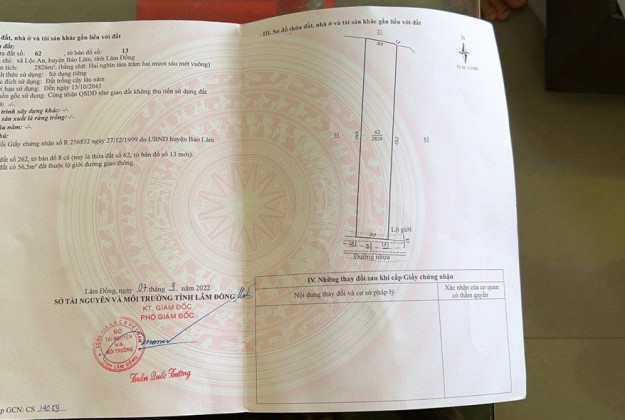 đất, nhà ở và tài sản khác gắn liền với đất
a đất:
a đất số: 62 , tờ bản đồ số: 13
chỉ: xã Lộc An, huyện Bảo Lâm, tỉnh Lâm Đồng
n tích: 2826m², (bằng chữ: Hai nghìn tám trăm hai mươi sáu mét vuông)
h thức sử dụng: Sử dụng riêng
c đích sử dụng: Đất trồng cây lâu năm
i hạn sử dụng: Đến ngày 15/10/2043
uồn gốc sử dụng: Công nhận QSDĐ như giao đất không thu tiền sử dụng đất
: -/-
trình xây dựng khác: -/-
sản xuất là rừng trồng: -/-
âu năm: -/-
hú:
ổi Giấy chứng nhận số R 256852 ngày 27/12/1999 do UBND huyện Bảo Lâm
đất số 262, tờ bản đồ 8 cũ (nay là thửa đất số 62, tờ bản đồ số 13 mới).
đất có 56,5m² đất thuộc lộ giới đường giao thông.
Lâm Đồng, ngày 07 tháng 9 năm 2022
SỞ TÀI NGUYÊN VÀ MÔI TRƯỜNG TỈNH LÂM ĐỒNG
KT. GIÁM ĐỐC
PHÓ GIÁM ĐỐC
SỞ
TÀI NGUYÊN
VÀ
MÔI TRƯỜNG
p GCN: CS
III. Sơ đồ thửa đất, nhà ở và tài sản khác gắn liền với đất
61
62
2826
63
Lộ giới
Đường nhựa
IV. Những thay đổi sau khi cấp Giấy chứng nhận
Nội dung thay đổi và cơ sở pháp lý
Xác nhận của cơ quan
có thẩm quyền